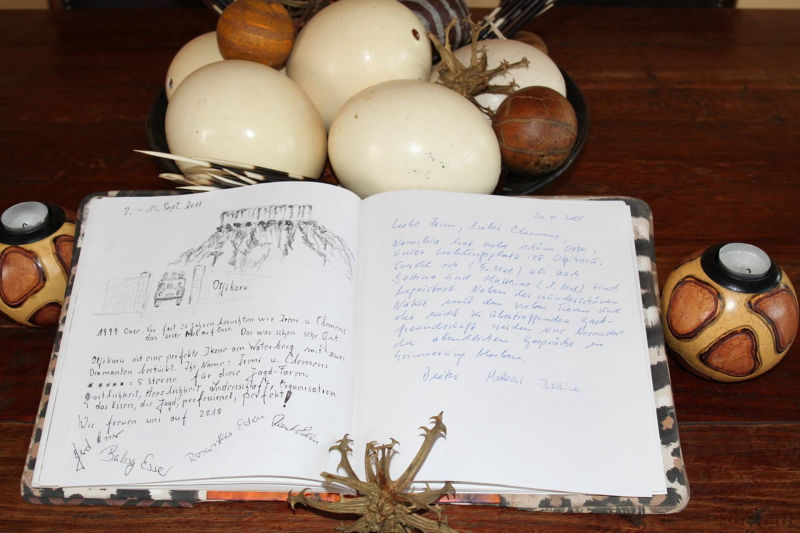 2. - 15. Sept. 2017
Otjikaru
1999 Oase. Vor fast 20 Jahren besuchten wir Irmi u. Clemens
das erste Mal auf Oase. Das war schon sehr Gut
Otjikaru ist eine perfekte Ikone am Waterberg mit zwei
Diamanten bestückt. Ihr Name: Irmi u. Clemens
= 5 Sterne für diese Jagd-Farm.
Gastlichkeit, Herzlichkeit, Leidenschaft, Organisation
das Essen, die Jagd, professionel, perfekt!
Wir freuen uns auf 2018
Liebe Irmi, lieber Clemens,
Namibia hat viele schöne Orte.
unser Lieblingsplatz ist Otjikaru.
Sowohl ich (5. Mal) als auch
Bettina und Matthias (1. Mal) sind
begeistert. Neben der wunderschönen
Natur und den vielen Tieren und
der nicht zu übertreffenden Gast-
freundschaft werden uns besonders
die abendlichen Gespräche in
Erinnerung bleiben.
Dieter Matthias